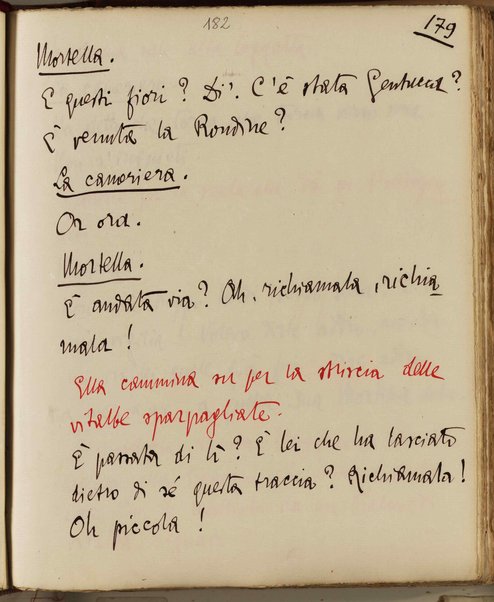 182
179
Mortella.
E questi fiori? Di'. C'è stata Gentucca?
È venuta la Rondine?
La cameriera.
Or ora.
Mortella.
È andata via? Oh, richiamala, richia
mala!
Ella cammina su per la striscia delle
vitalbe sparpagliate.
È passata di lì? È lei che ha lasciato
dietro di sé questa traccia? Richiamala!
Oh piccola!